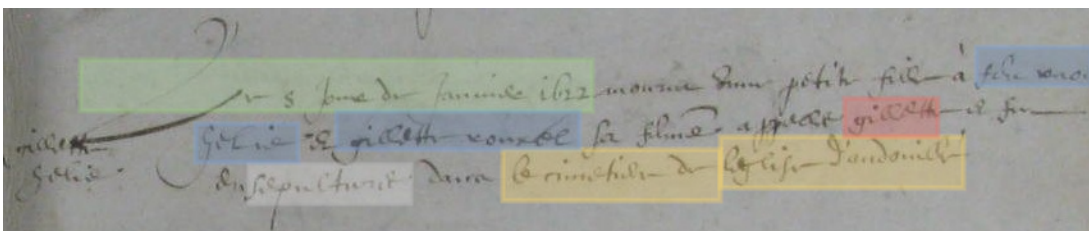 Le 8 jour de Janvier 1622 mourut une petite fille à
gillette helie et gillette rouxel sa femme appellee gillette et fut
helie. en sepulture dans le cimetiere de leglise d'andouille